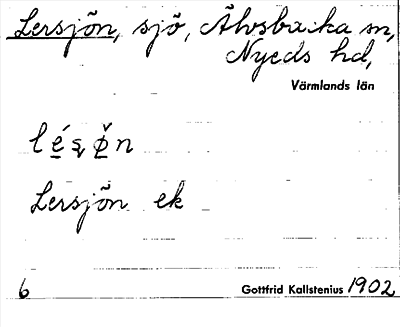 Lersjön, sjö, Älvsbacka sn,
Nyeds hd,
Värmlands län
Lersjön ek
6 Gottfrid Kallstenius 1902